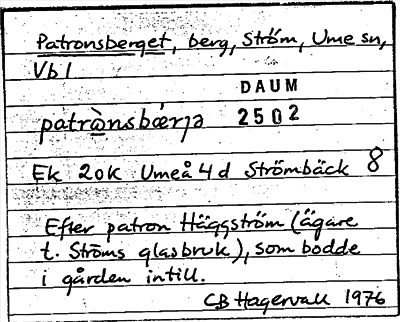 Patronsberget, berg, Ström, Ume sn,
Vbl
DAUM
2502
patrànsbœrjə
Ek 20k Umeå 4 d Strömbäck 8
Efter patron Häggström (ägare
t. Ströms glasbruk), som bodde
i gården intill.
CB Hagervall 1976